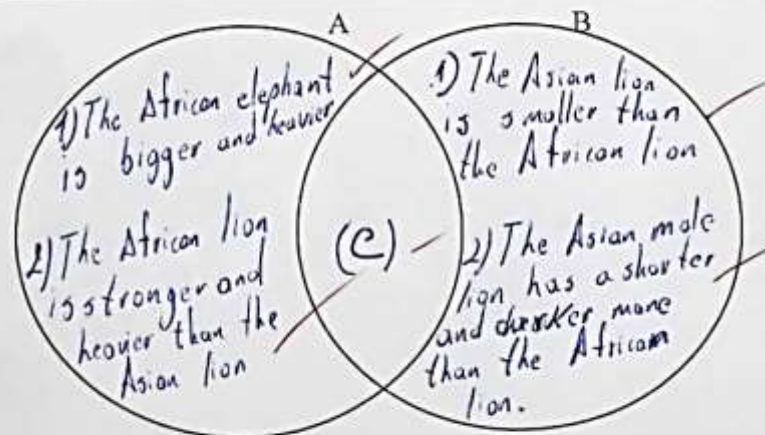 A
B
1) The African elephant
is bigger and heavier
2) The African lion
is stronger and
heavier than the
Asian lion
(C)
1) The Asian lion
is smaller than
the African lion
2) The Asian male
lion has a shorter
and darker mane
than the African
lion.